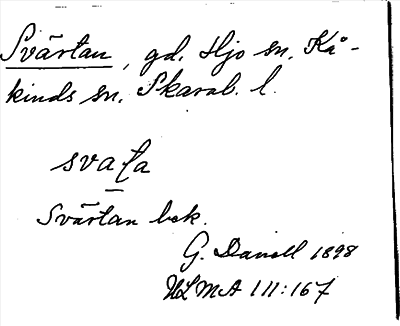 Svärtan, gd. Hjo sn. Kå-
kinds sn. Skarab. l.
svaʈa
Svärtan bek.
G. Danell 1898
ULMA 111:167